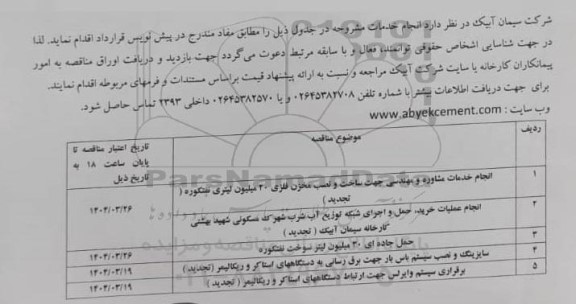 شرکت سیمان آبیک در نظر دارد انجام خدمات مشروحه در جدول ذیل را مطابق مفاد مندرج در پیش نویس قرارداد اقدام نماید. لذا
در جهت شناسایی اشخاص حقوقی توانمند، فعال و با سابقه مرتبط دعوت می گردد جهت بازدید و دریافت اوراق مناقصه به امور
پیمانکاران کارخانه یا سایت شرکت آبیک مراجعه و نسبت به ارائه پیشنهاد قیمت براساس مستندات و فرمهای مربوطه اقدام نمایند.
برای جهت دریافت اطلاعات بیشتر با شماره تلفن ۰۲۶۴۵۳۸۲۷۰۸ و یا ۰۲۶۴۵۳۸۲۵۷۰ داخلی ۲۳۹۳ تماس حاصل شود.
وب سایت : www.abyekcement.com
ردیف
موضوع مناقصه
تاریخ اعتبار مناقصه تا
پایان ساعت ۱۸ به
تاریخ ذیل
۱
انجام خدمات مشاوره و مهندسی جهت ساخت و نصب مخزن فلزی ۲۰ میلیون لیتری نفتکوره (
تجدید )
۲
انجام عملیات خرید، حمل و اجرای شبکه توزیع آب شرب شهرک مسکونی شهید بهشتی
کارخانه سیمان آبیک ( تجدید )
۱۴۰۴/۰۳/۲۶
۳
حمل جاده ای ۳۰ میلیون لیتر سوخت نفتکوره
۱۴۰۴/۰۳/۲۶
۴
سایزینگ و نصب سیستم باس بار جهت برق رسانی به دستگاههای استاکر و ریکلایمر (تجدید )
۱۴۰۴/۰۳/۱۹
۵
برقراری سیستم وایرلس جهت ارتباط دستگاههای استاکر و ریکلایمر ( تجدید )
۱۴۰۴/۰۳/۱۹
ParsNamadData